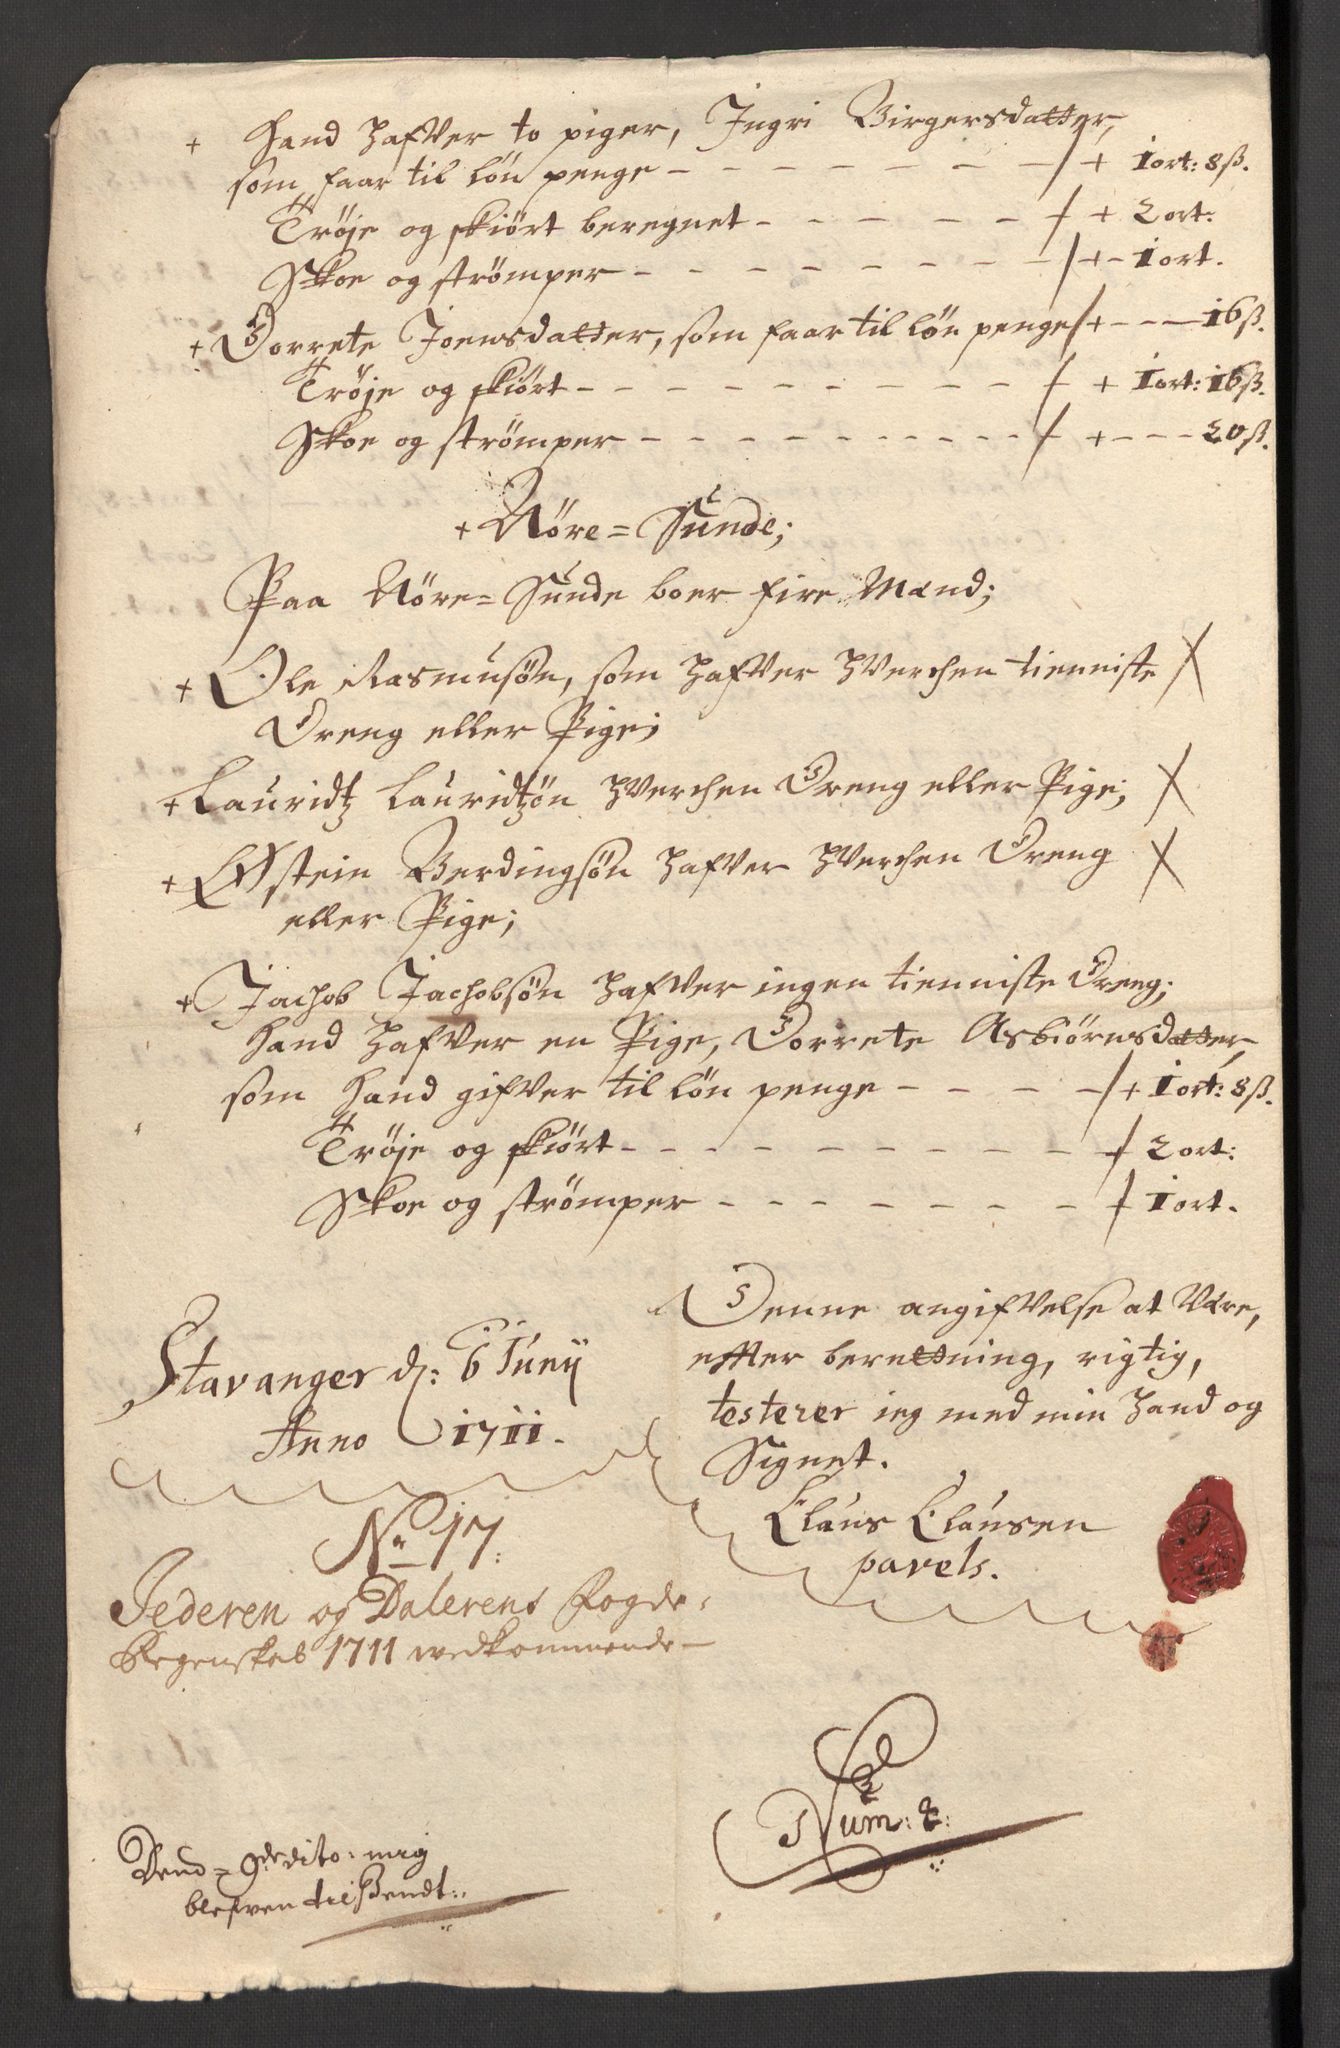 + Hand hafver to piger, Ingri Birgersdatter,
som faar til løn penge - - - - - - - /+ 1 ort: 8 ß.
Trøje og skiørt beregnet - - - - - / + 2 ort:
Skoe og strømper - - - - - - - - /+ - 1 ort.
+ Dorrete Joensdatter, som faar til løn penge /+ - - - 16 ß.
Trøje og skiørt - - - - - - - - - / + 1 ort: 16 ß.
Skoe og strømper - - - - - - - - - - / + - - - 20 ß.
+ Nöre = Sunde;
Paa Nöre = Sunde boer fire Mænd;
+ Ole Rasmusøn, som hafver hverchen tienniste X
Dreng eller Pige;
+ Lauridtz Lauridtzøn hverchen Dreng eller Pige; X
+ Østein Berdingsøn hafver hverchen Dreng X
eller Pige;
+ Jachob Jachobsøn hafver ingen tienniste Dreng;
Hand hafver en Pige, Dorrete Asbiørnsdatter,
som Hand gifver til løn penge - - - - /+ 1 ort: 8 ß.
Trøje og skiørt - - - - - - - - - / 2 ort:
Skoe og strømper - - - - - - - / 1 ort.
Stavanger d: 6 Junij
Anno 1711.
Denne angifvelse at være,
effter berettning, rigtig,
testerer jeg med min Hand og
Signet.
Claus Clausen
pavels.
No 17:
Jederen og Dalerens Fogde,
Regenskab 1711 vedkommende
Dend = 9de dito: mig
blefven til Sendt:
Num: 2: